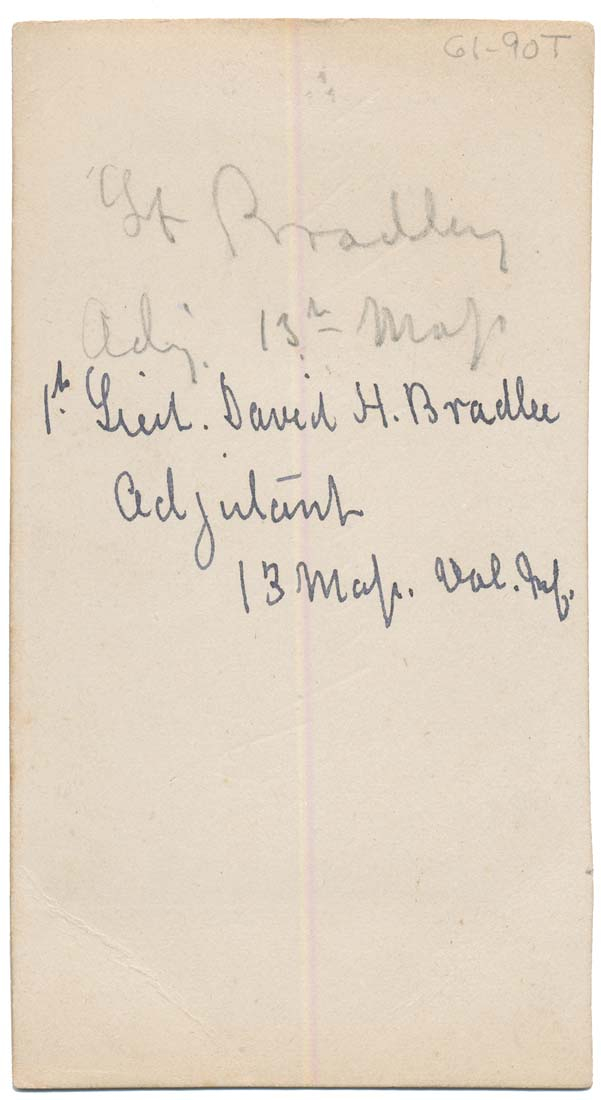 61-90T
Lt Bradley
Adj. 13th Maſs
1t. Lieut. David H. Bradlee
Adjutant
13 Maſs. Vol. Inf.